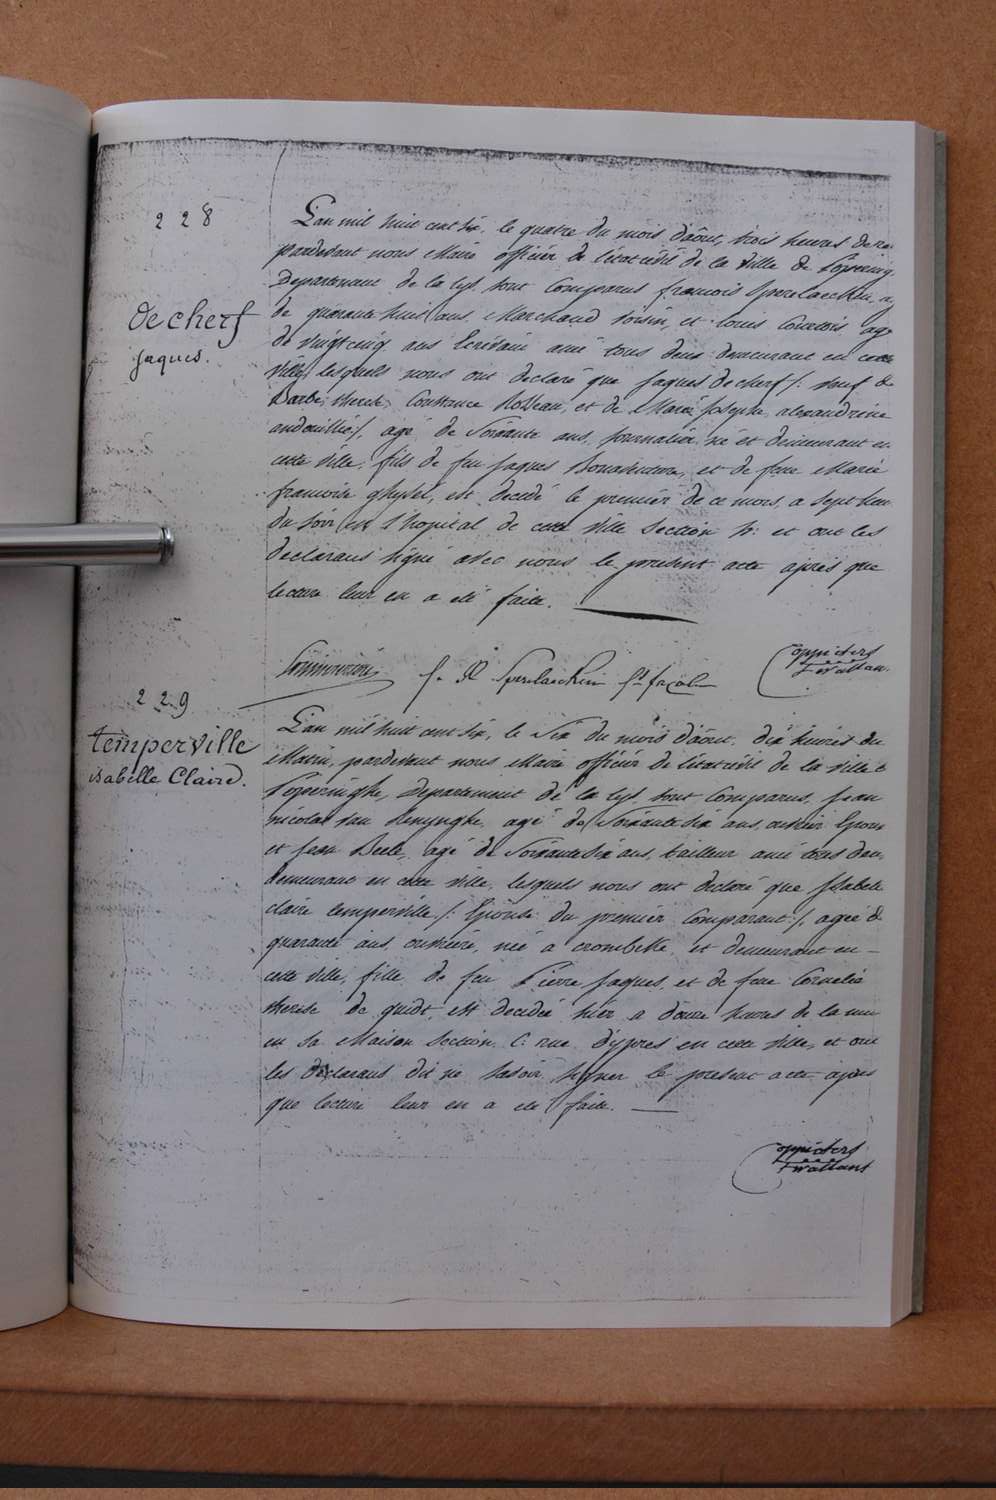 228
de cherf
jaques.
L'an mil huit cent six, le quatre du mois d'août, trois heures de
pardevant nous Maire officier de l'état civil de la ville de Poperingh
Departement de la Lys, sont Comparus francois Sperlaecken, ag
de quarante huit ans, Marchand voisin, et louis age
de vingt cinq ans Ecrivain ami tous deux demeurant en cette
ville, lesquels nous ont declaré que jaques de cherf /: veuf de
Barbe, therese, Constance et de Marie josephe, alexandrine
:/, agé de soixante ans, journalier né et demeurant en
cette ville, fils de feu jaques Bonaventure, et de feue Marie
francoise ghysel, est decédé le premier de ce mois, a sept heu
du soir en l'hopital de cette ville section h: et ont les
declarans signé avec nous le present acte après que
lecture leur en a été faite.
229
temperville
isabelle Claire.
L'an mil huit cent six, le six du mois d'août, dix heures du
Matin, pardevant nous Maire officier de l'état civil de la ville d
Poperinghe, Departement de la Lys, sont Comparus, jean
nicolas van agé de soixante six ans, ouvrier Epoux
et jean Beele, agé de soixante six ans, tailleur ami tous deux
demeurant en cette ville, lesquels nous ont declaré que Isabele
claire temperville /: Epouse du premier Comparant :/, agée d
quarante ans, ouvriere, née a crombeke, et demeurant en
cette ville, fille de feu Pierre jaques, et de feue Cornelie
therese de quidt, est decedée hier a douze heures de la nuit
en sa Maison section C: rue d'ypres en cette ville, et ont
les declarans dit ne savoir signer le present acte après
que lecture leur en a été faite.